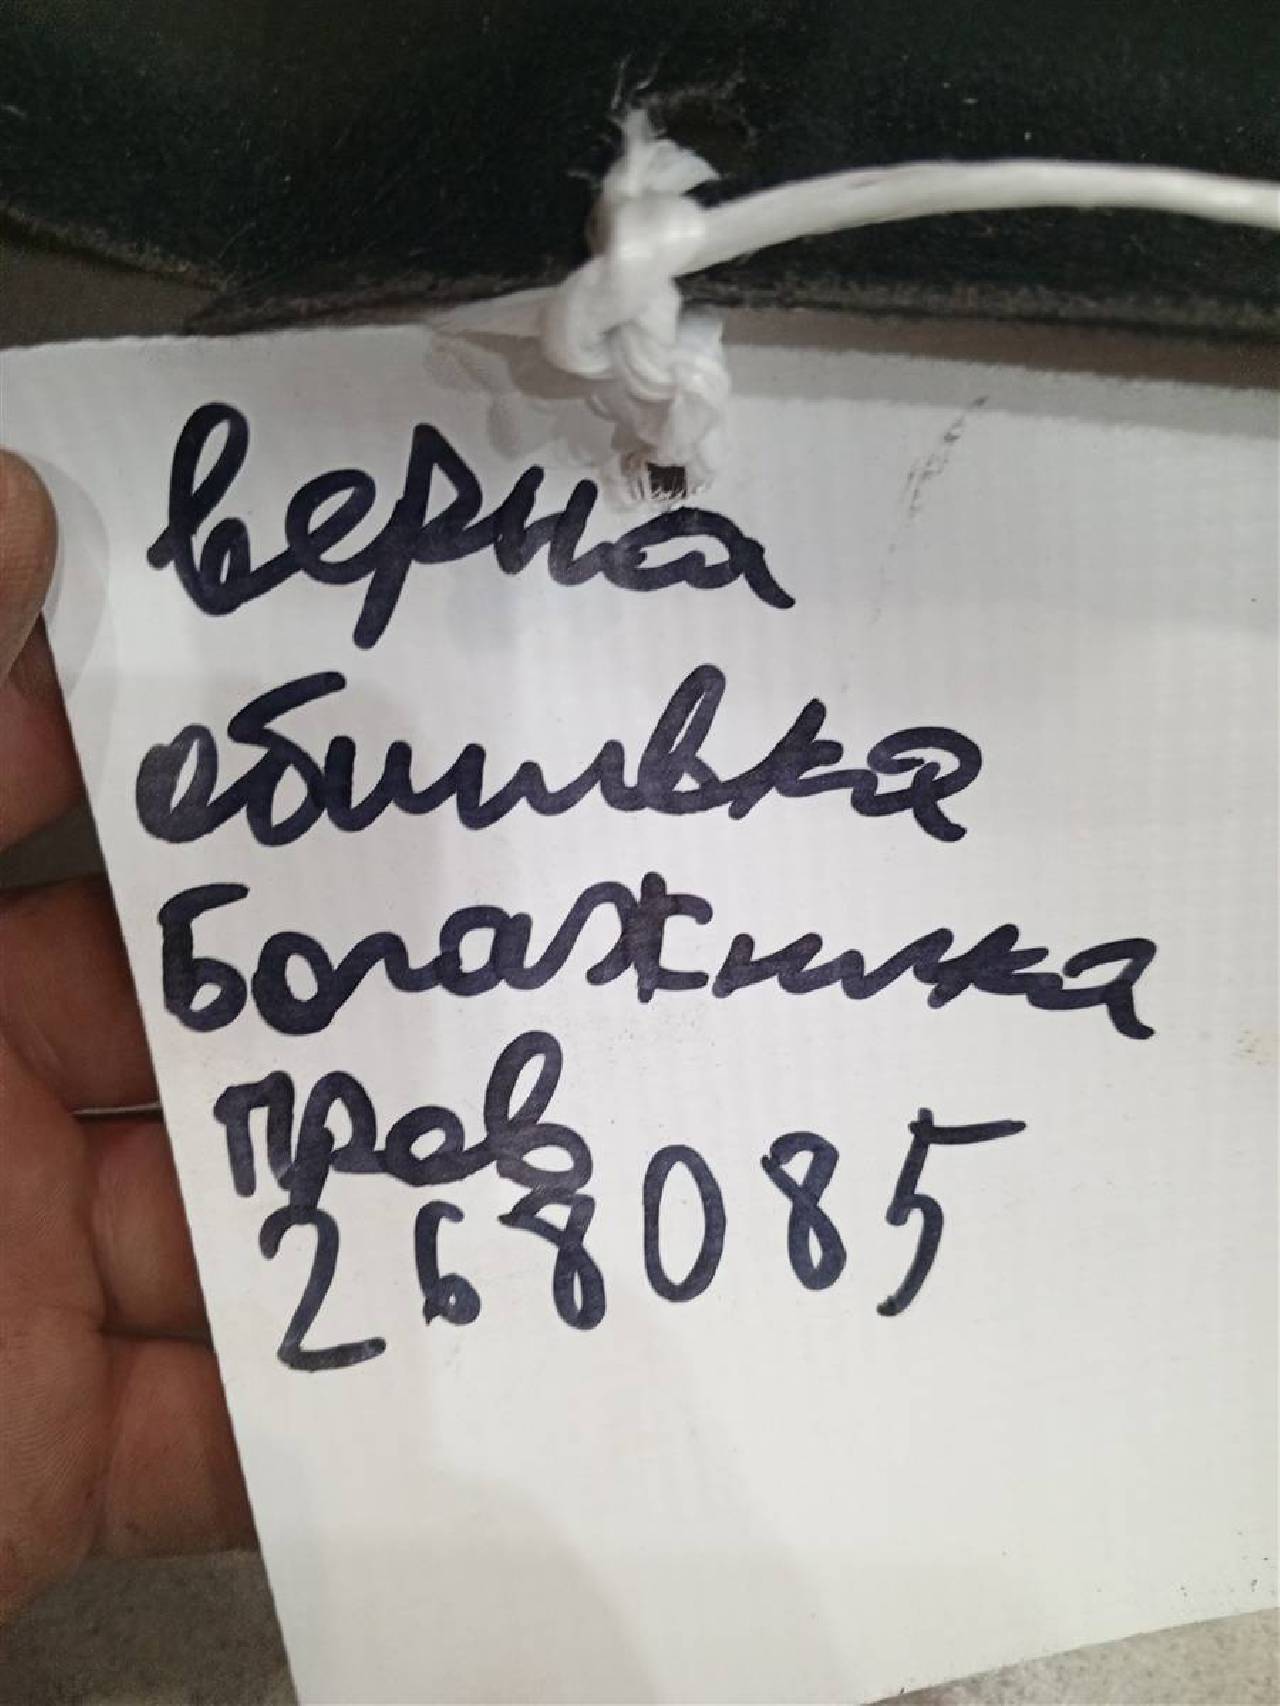 верна
обшивка
Богажника
прав
268085